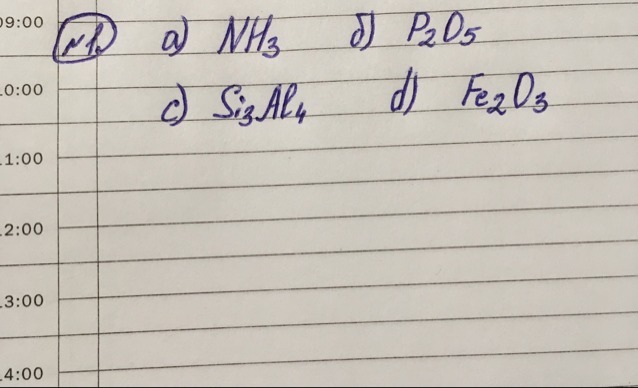 09:00
№1. a) NH3 б) P2O5
0:00
c) Si3Al4 d) Fe2O3
1:00
2:00
3:00
4:00